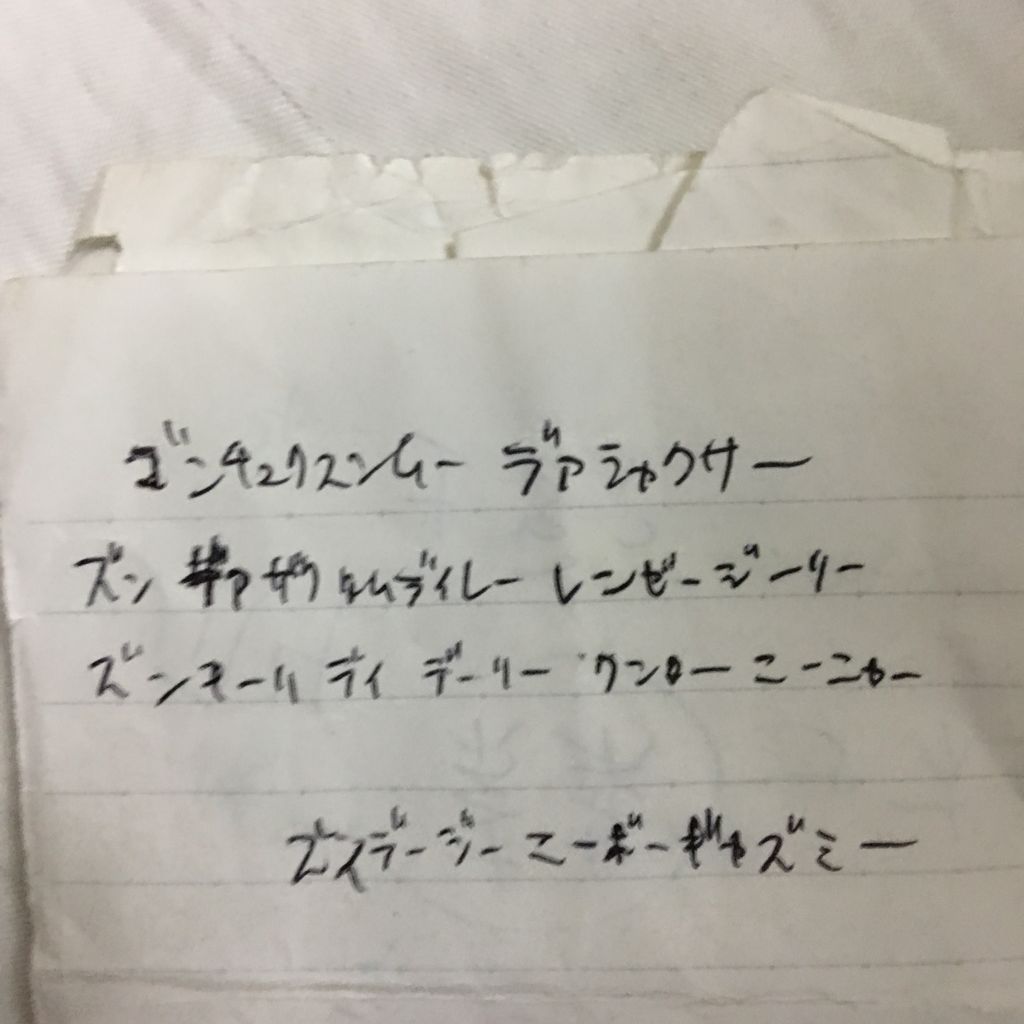 ズンチュクスンムー デァシャクサー
ズン ギァザク タムディレー レンゼージーリー
ズンモーリ ディ デーリー ワンローニーニャー
ズイデージー ニーボーギャズミー